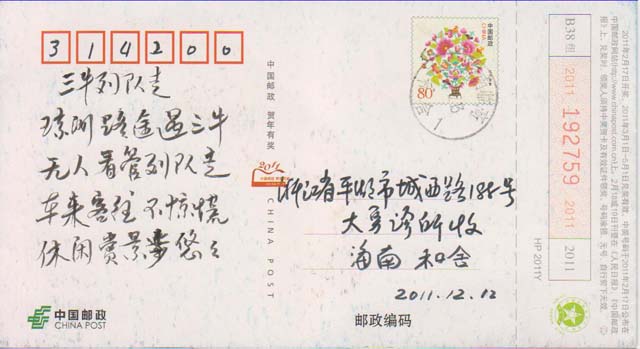 314200
三牛列队走
琼州路途遇三牛
无人看管列队走
车来客往不惊慌
休闲赏景步悠々
中国邮政
CHINA POST
中国邮政 贺年有奖
2011
CHINA POST
中国邮政
CHINA
80分
浙江省平湖市城西路188号
大勇诊所收
海南 和舍
2011.12.12
邮政编码
HP 2011Y
B38组
2011
192759
2011
2011